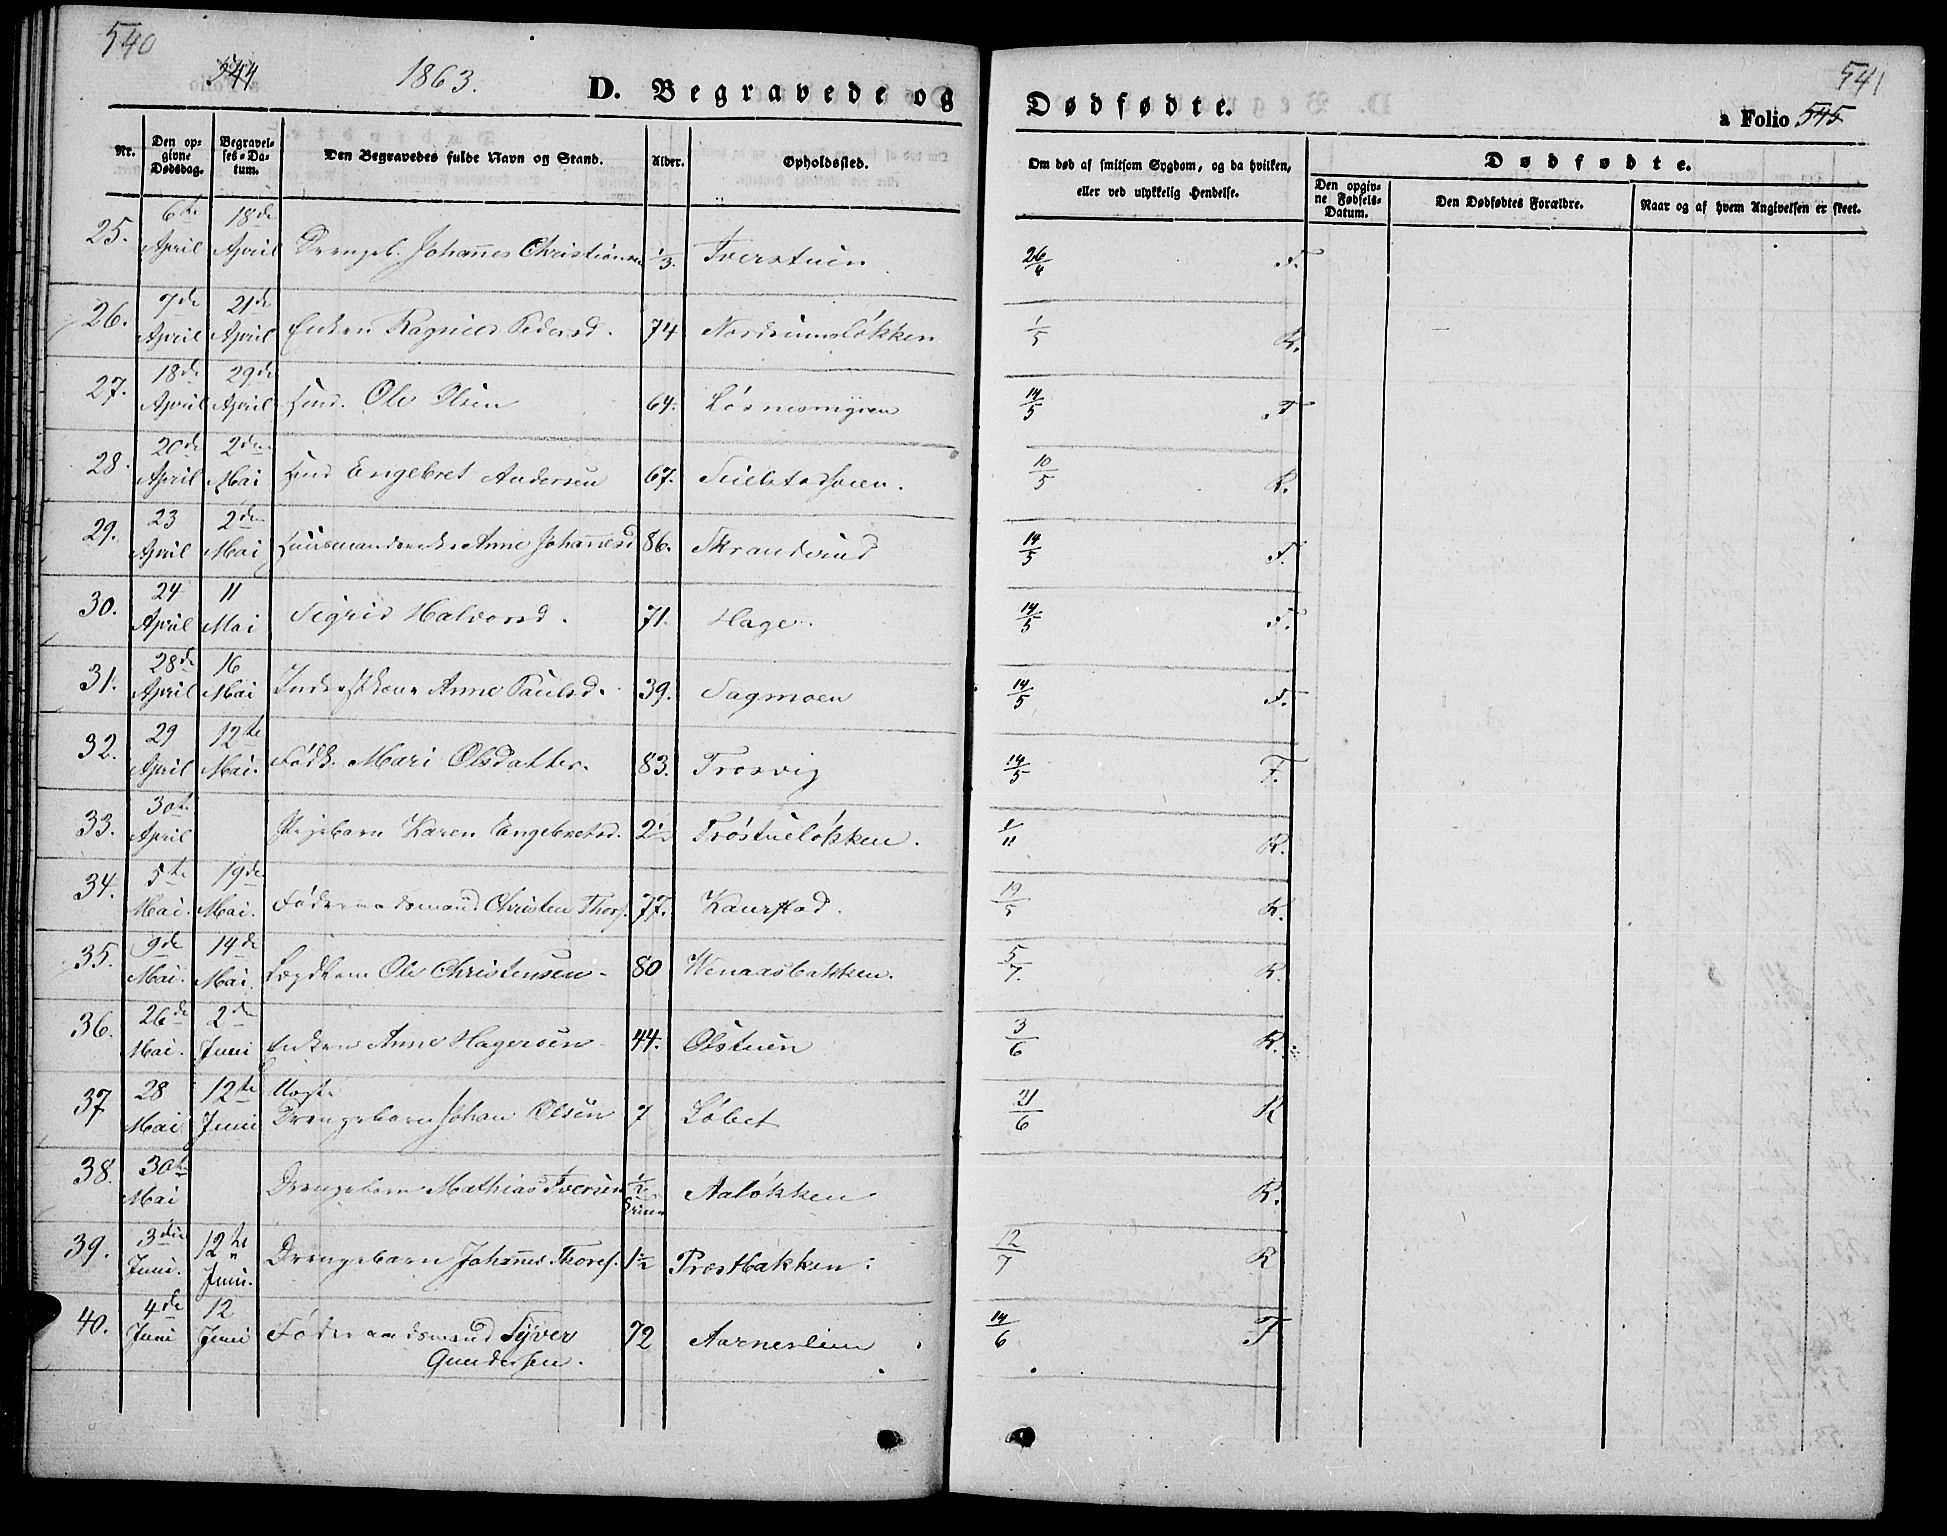 540
544
1863.
D. Begravede og
Nr.
Den opgivne Dødsdag.
Begravelses-Datum.
Den Begravedes fulde Navn og Stand.
Alder.
Opholdssted.
25. 6te April 18de April Drengeb. Johannes Christiansen 1/3. Tverstuen
26. 7de April 21de April Enken Ragnild Pedersd. 74 Nordrumsløkken
27. 18de April 29de April Huusm. Ole Olsen 64. Løsnesmyren
28. 20de April 2den Mai Huusm Engebret Andersen 67.
29. 23 April 2den Mai Huusmandsenke Anne Johannesd 86. Skranderud
30. 24 April 11 Mai Sigrid Halvorsd. 71. Hage.
31. 28de April 16 Mai Anne Paulsd. 39. Sagmoen
32. 29 April 12te Mai. Mari Olsdatter. 83. Trosvig
33. 30te April Pigebarn Karen Engebretsd. 2 1/2 Trøstueløkken.
34. 5te Mai. 19de Mai. Føderaadsmand Christen Thors. 77. Kaurstad.
35. 9de Mai. 14de Mai. Lægdlem Ole Christensen 80 Wenaasbakken.
36. 26de Mai. 2den Juni Enken Anne Hagersen 44. Olstuen
37 28 Mai 12te Juni Uægte Drengebarn Johan Olsen 7 Løbet
38. 30te Mai Drengebarn Mathias Iversen 1/2 Aaløkken
39. 3die Juni. 12te Juni. Drengebarn Johannes Thores. 1 1/2 Prestbakken.
40. 4de Juni 12 Juni Føderaadsmand Syver Gundersen. 72 Aarneslien
541
Dødfødte.
a Folio 545
Om død af smitsom Sygdom, og da hvilken,
eller ved ulykkelig Hendelse.
Dødfødte.
Den opgivne Fødsels-Datum.
Den Dødfødtes Forældre.
Naar og af hvem Angivelsen er skeet.
26/4 F.
1/5 K.
14/5 F
10/5 K.
14/5 F.
14/5 F.
14/5 F.
14/5 F.
1/11 K.
19/5 K.
5/7. K.
3/6 K.
21/6 K
K.
12/7 K
14/6 F